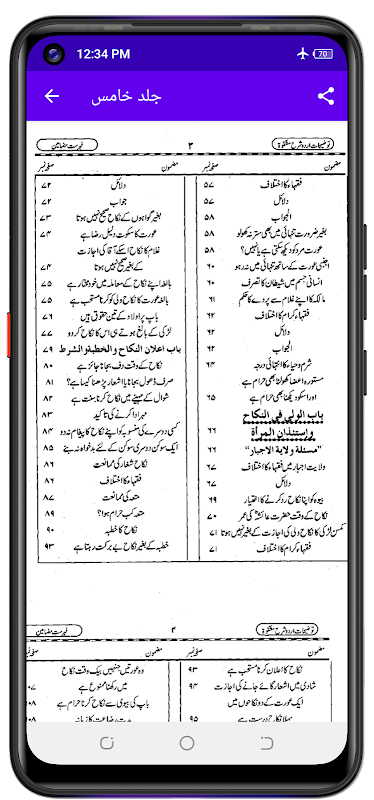 12:34 PM
70
جلد خامس
توضیحات اردو شرح مشکوٰۃ
۳
فہرست مضامین
مضمون
صفحہ نمبر
فقہاء کا اختلاف ۵۷
دلائل ۵۷
الجواب ۵۸
بغیر ضرورت تنہائی میں بھی ستر نہ کھولو ۵۸
عورت مرد کو دیکھ سکتی ہے یا نہیں؟ ۵۸
اجنبی عورت کے ساتھ تنہائی میں نہ رہو ۶۰
انسانی جسم میں شیطان کا تصرف ۶۰
مالکہ کا اپنے غلام سے پردے کا حکم ۶۱
فقہاء کرام کا اختلاف ۶۲
دلائل ۶۲
الجواب ۶۲
شرم وحیاء کا انتہائی درجہ ۶۴
مستورہ اعضا کھولنا بھی حرام ہے
اور اسکو دیکھنا بھی حرام ہے ۶۵
باب الولی فی النکاح
واستئذان المرأة ۶۶
"مسئلة ولاية الاجبار" ۶۶
ولایت اجبار میں فقہاء کا اختلاف ۶۷
دلائل ۶۷
بیوہ کو اپنا نکاح رد کرنے کا اختیار ۶۹
نکاح کے وقت حضرت عائشہؓ کی عمر ۷۰
کمسن لڑکی کا نکاح ولی کی اجازت کے بغیر نہیں ہوتا ۷۱
فقہاء کرام کا اختلاف ۷۱
مضمون
صفحہ نمبر
دلائل ۷۲
جواب ۷۲
بغیر گواہوں کے نکاح صحیح نہیں ہوتا ۷۳
عورت کا سکوت دلیل رضا ہے ۷۴
غلام کا نکاح اسکے آقا کی اجازت
کے بغیر صحیح نہیں ۷۴
بالغہ اپنے نکاح کے معاملہ میں خود مختار ہے ۷۵
بالغہ عورت کا نکاح ولی کو کرنا مستحب ہے ۷۵
باپ پر اولاد کے تین حقوق ہیں ۷۶
لڑکی کے بالغ ہوتے ہی اس کا نکاح کر دو ۷۷
باب اعلان النکاح والخطبة والشرط ۷۹
نکاح کے وقت دف بجانا جائز ہے ۸۰
صرف ڈھول بجانا یا اشعار پڑھنا کیسا ہے؟ ۸۱
شوال کے مہینے میں نکاح کرنا سنت ہے ۸۲
مہر ادا کرنے کی تاکید ۸۳
کسی دوسرے کی منسوبہ کو اپنے نکاح کا پیغام نہ دو ۸۴
ایک سوکن دوسری سوکن کے لئے بدخواہ نہ بنے ۸۵
نکاح شغار کی ممانعت ۸۶
فقہاء کا اختلاف ۸۶
متعہ کی ممانعت ۸۷
متعہ کب حرام ہوا؟ ۸۹
نکاح کا خطبہ ۹۰
خطبہ کے بغیر نکاح بے برکت رہتا ہے ۹۳
توضیحات اردو شرح مشکوٰۃ
۴
فہرست مضامین
مضمون
صفحہ نمبر
نکاح کا اعلان کرنا مستحب ہے ۹۳
شادی میں اشعار گانے جانے کی اجازت ۹۴
ایک عورت کے دو نکاحوں میں
پہلا نکاح درست ہے ۹۵
مضمون
صفحہ نمبر
وہ عورتیں جنہیں بیک وقت نکاح
میں رکھنا ممنوع ہے
باپ کی بیوی سے نکاح کرنا حرام ہے